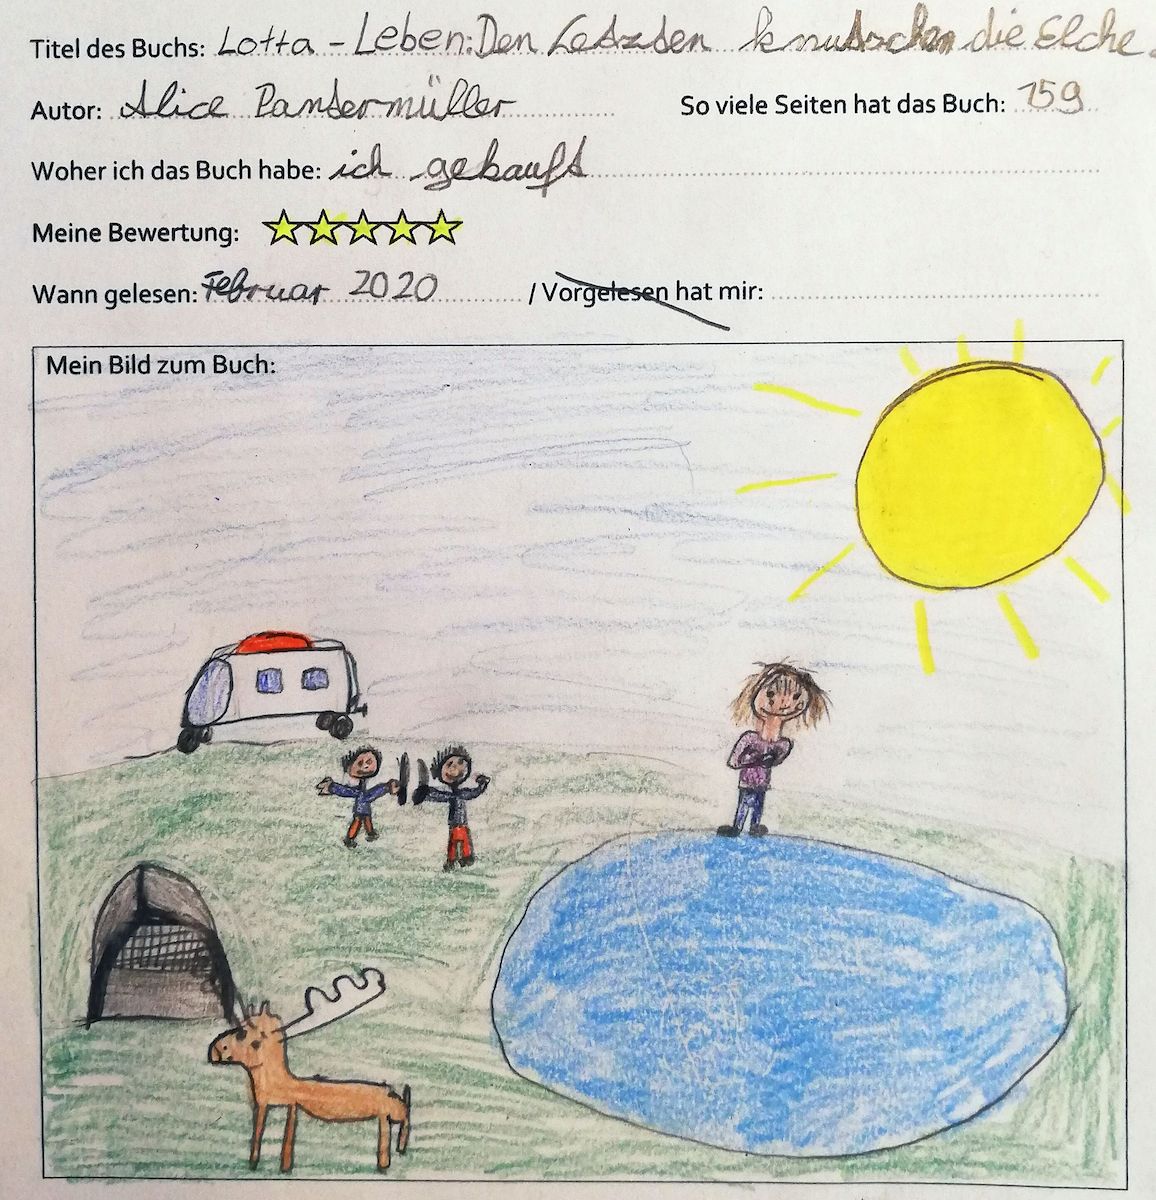 Titel des Buchs: Lotta - Leben: Den Letzten knutschen die Elche.
Autor: Alice Pantermüller So viele Seiten hat das Buch: 159
Woher ich das Buch habe: ich gekauft
Meine Bewertung:
Wann gelesen: Februar 2020 / Vorgelesen hat mir:
Mein Bild zum Buch: